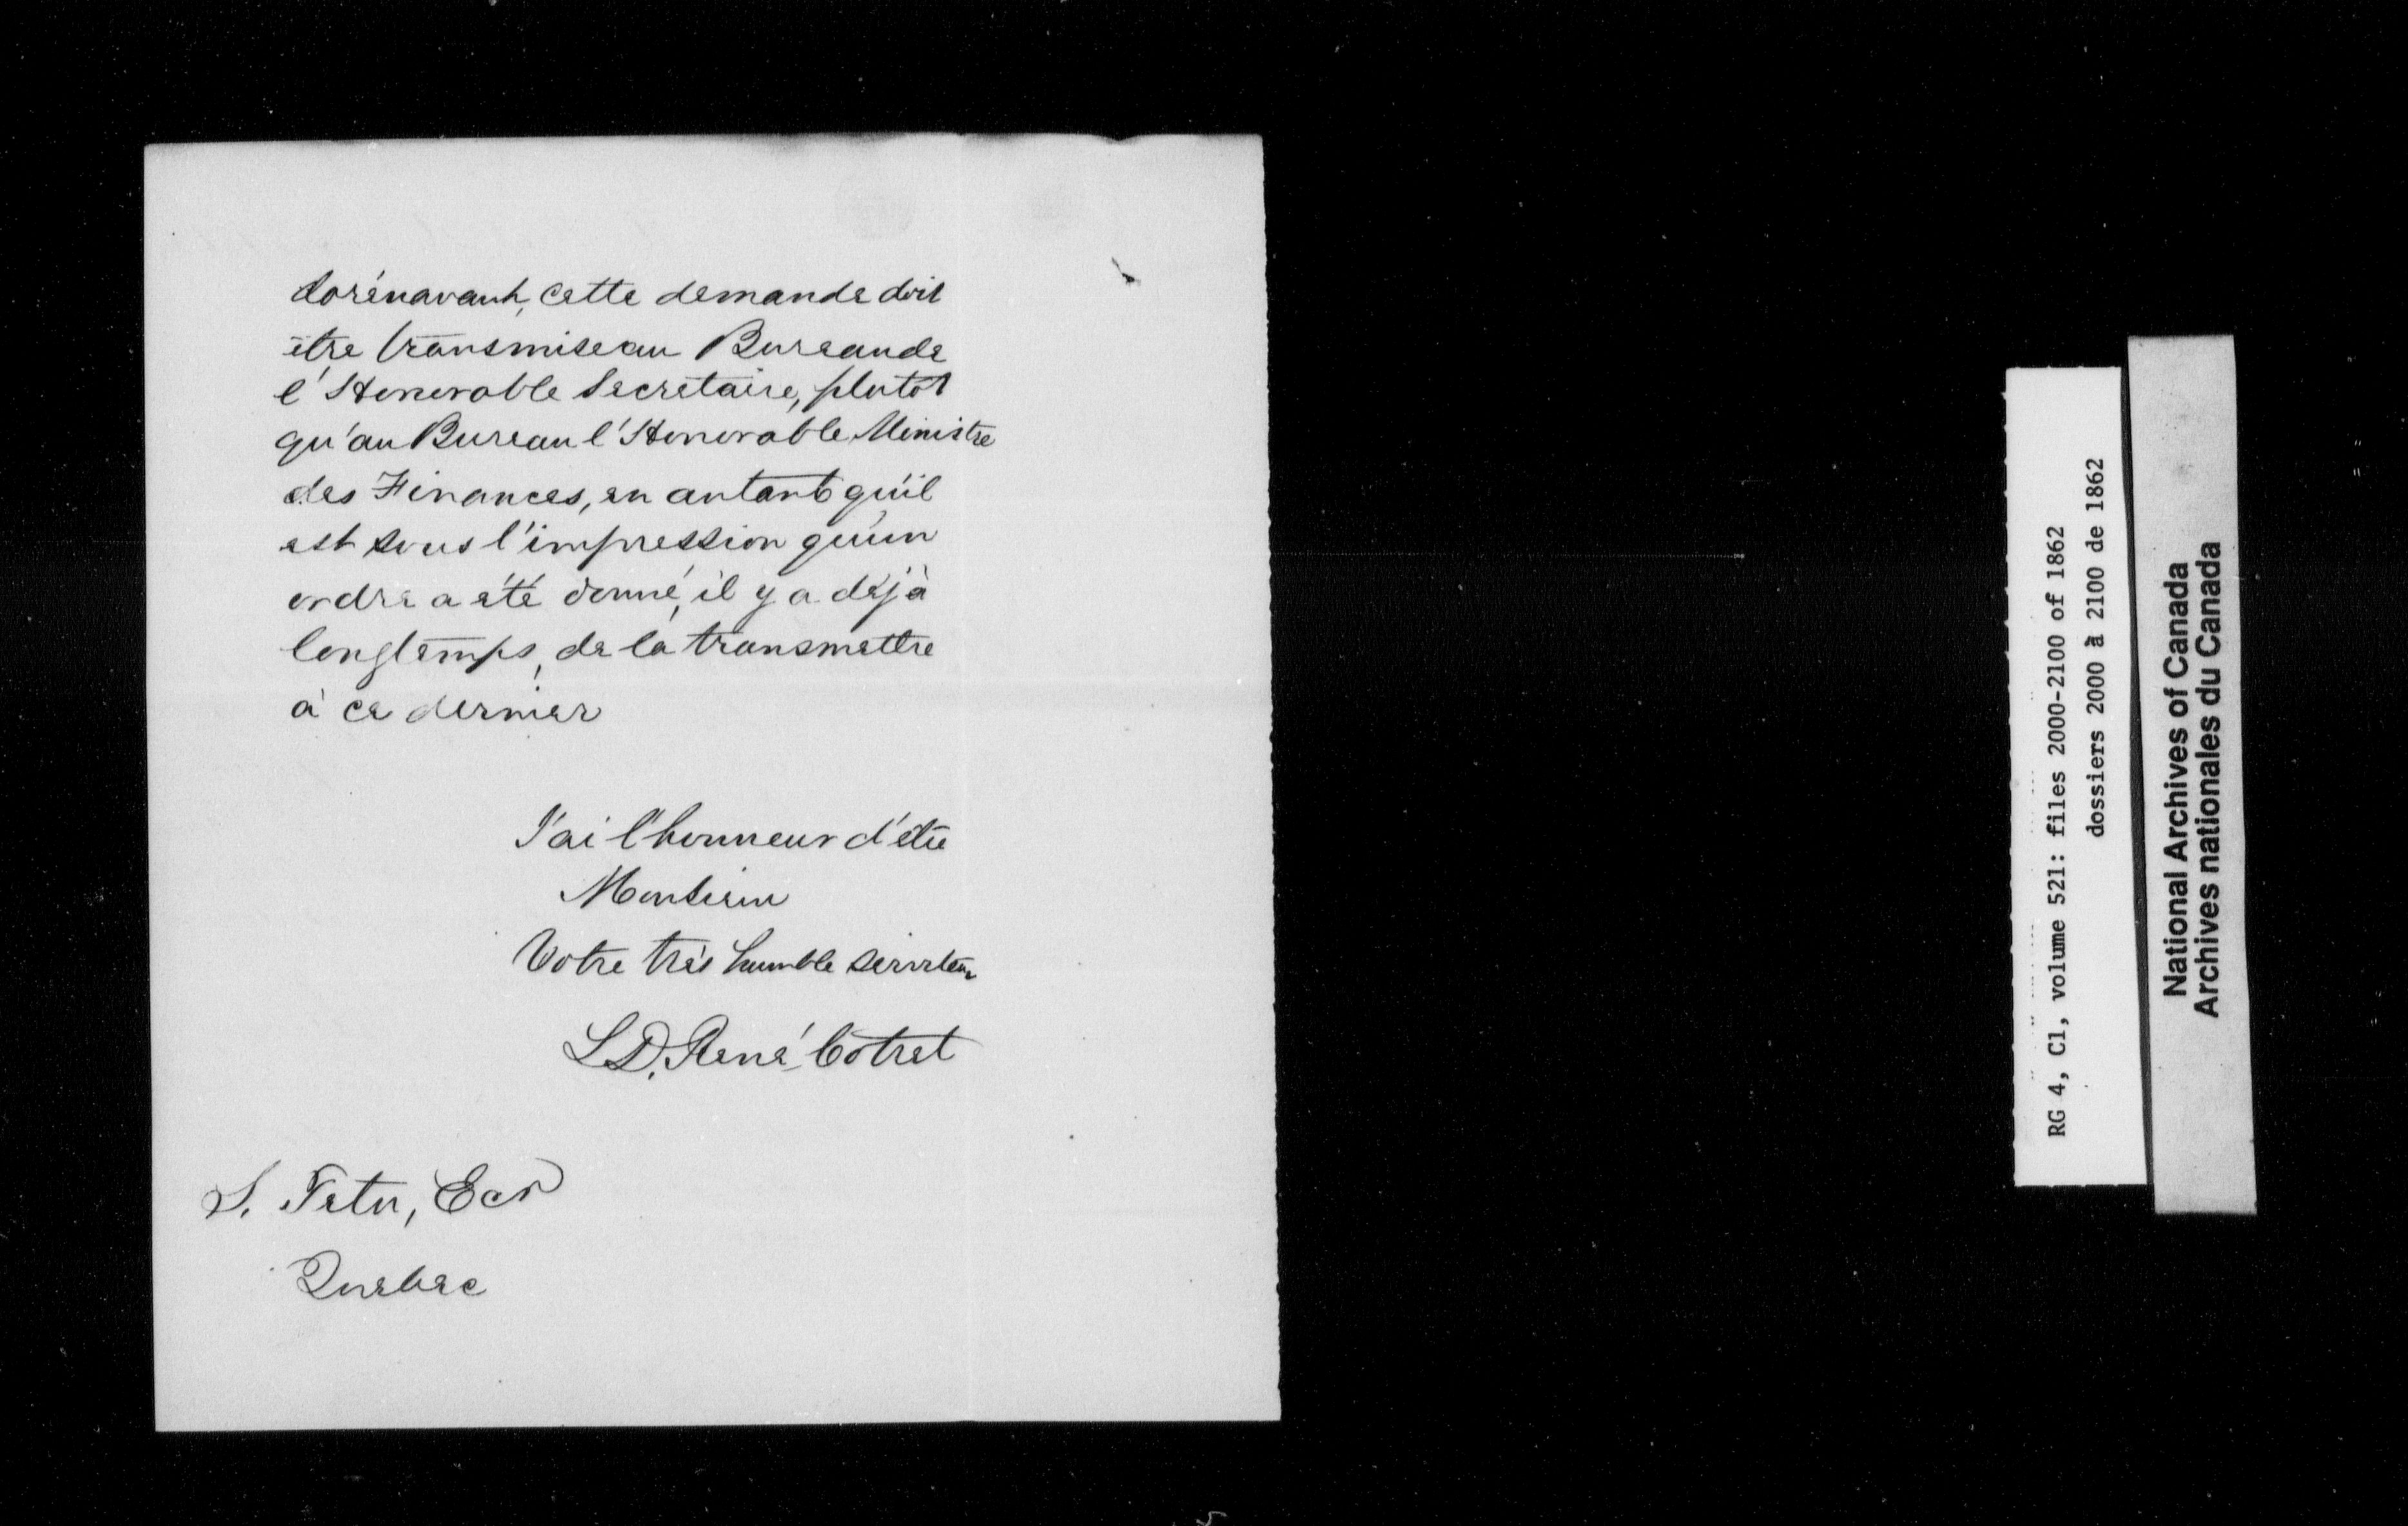 dorénavant, cette demande doit
être transmise au Bureau de
l'Honorable Secrétaire, plutôt
qu'au Bureau l'Honorable Ministre
des Finances, en autant qu'il
est sous l'impression qu'un
ordre a été donné, il y a déjà
longtemps, de la transmettre
à ce dernier
J'ai l'honneur d'être
Monsieur
Votre très humble serviteur
L.D. René Cotret
S. Tetu, Ecr
Quebec
RG 4, C1, volume 521: files 2000-2100 of 1862
dossiers 2000 à 2100 de 1862
National Archives of Canada
Archives nationales du Canada